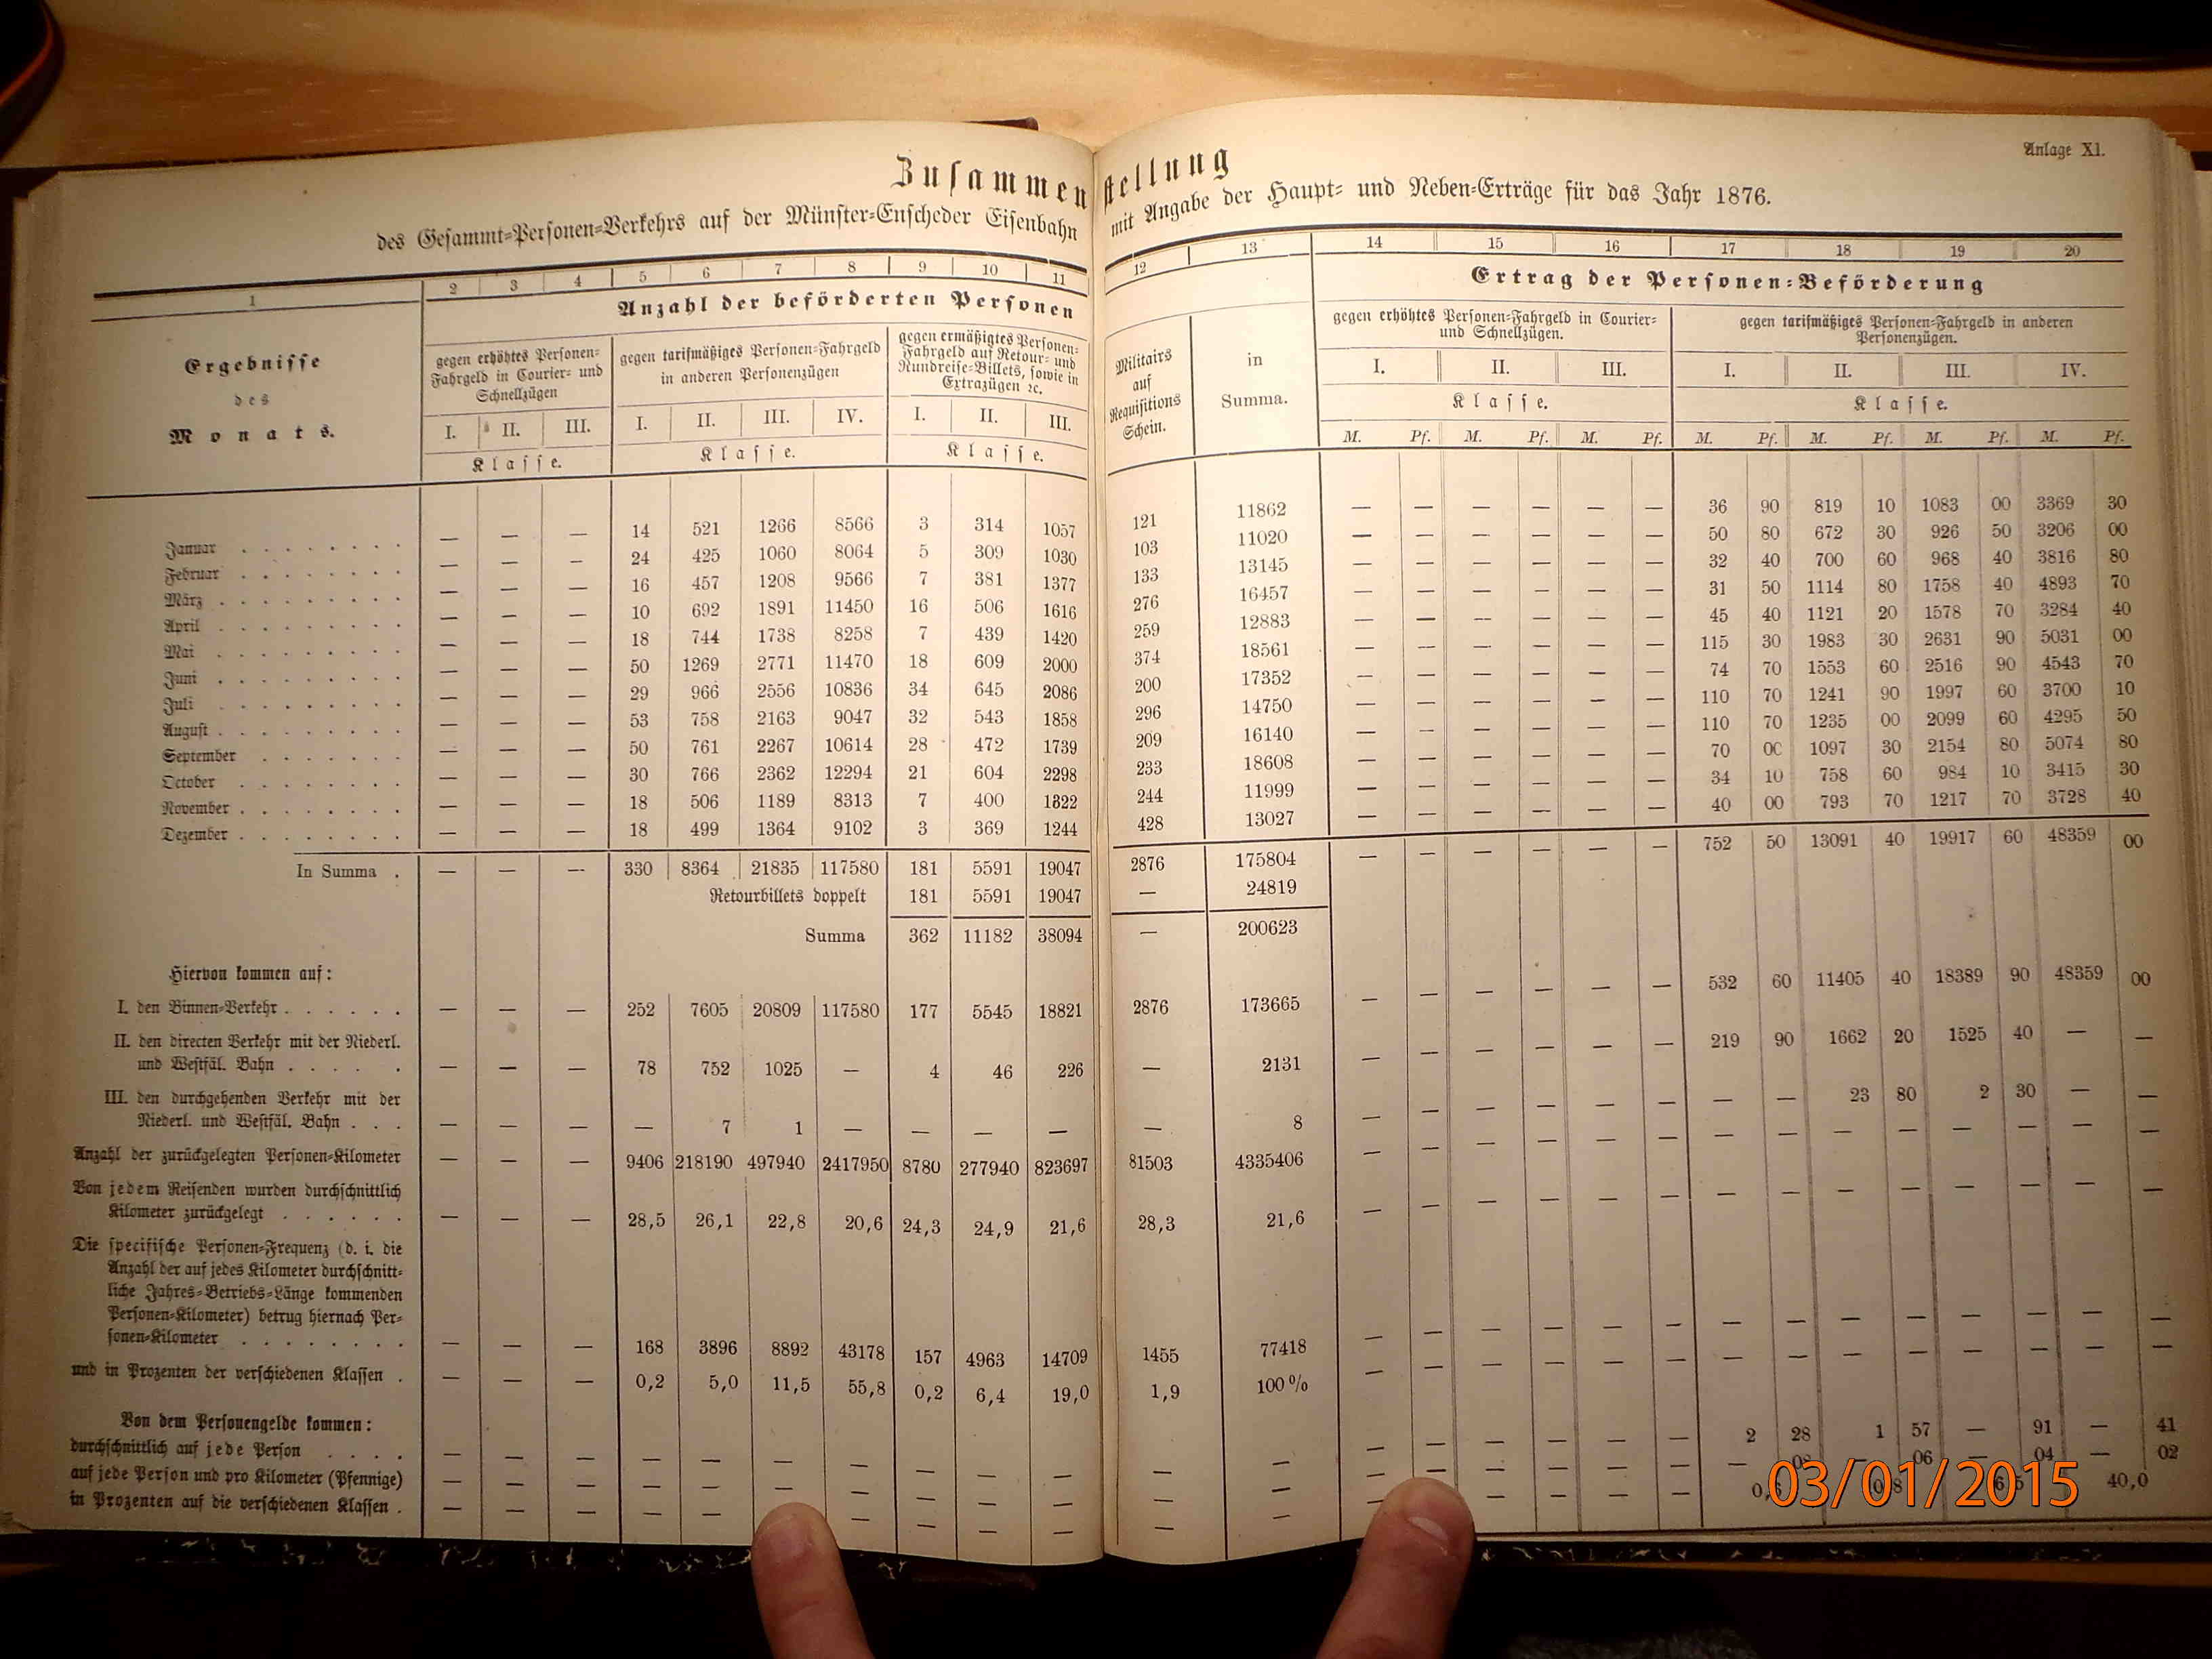 Anlage XI.
Zusammenstellung
des Gesammt-Personen-Verkehrs auf der Münster-Enscheder Eisenbahn mit Angabe der Haupt- und Neben-Erträge für das Jahr 1876.
1 2 3 4 5 6 7 8 9 10 11 12 13 14 15 16 17 18 19 20
Ergebnisse
des
Monats.
Anzahl der beförderten Personen
gegen erhöhtes Personen-
Fahrgeld in Courier- und
Schnellzügen
I. II. III.
Klasse.
gegen tarifmäßiges Personen-Fahrgeld
in anderen Personenzügen
I. II. III. IV.
Klasse.
gegen ermäßigtes Personen-
Fahrgeld auf Retour- und
Rundreise-Billets, sowie in
Extrazügen ꝛc.
I. II. III.
Klasse.
Militairs
auf
Requisitions
Schein.
in
Summa.
Ertrag der Personen-Beförderung
gegen erhöhtes Personen-Fahrgeld in Courier-
und Schnellzügen.
I. II. III.
Klasse.
M. Pf. M. Pf. M. Pf.
gegen tarifmäßiges Personen-Fahrgeld in anderen
Personenzügen.
I. II. III. IV.
Klasse.
M. Pf. M. Pf. M. Pf. M. Pf.
Januar . . . . . . . — — — 14 521 1266 8566 3 314 1057 121 11862 — — — — — — 36 90 819 10 1083 00 3369 30
Februar . . . . . . . — — — 24 425 1060 8064 5 309 1030 103 11020 — — — — — — 50 80 672 30 926 50 3206 00
März . . . . . . . . — — — 16 457 1208 9566 7 381 1377 133 13145 — — — — — — 32 40 700 60 968 40 3816 80
April . . . . . . . . — — — 10 692 1891 11450 16 506 1616 276 16457 — — — — — — 31 50 1114 80 1758 40 4893 70
Mai . . . . . . . . — — — 18 744 1738 8258 7 439 1420 259 12883 — — — — — — 45 40 1121 20 1578 70 3284 40
Juni . . . . . . . . — — — 50 1269 2771 11470 18 609 2000 374 18561 — — — — — — 115 30 1983 30 2631 90 5031 00
Juli . . . . . . . . — — — 29 966 2556 10836 34 645 2086 200 17352 — — — — — — 74 70 1553 60 2516 90 4543 70
August . . . . . . . . — — — 53 758 2163 9047 32 543 1858 296 14750 — — — — — — 110 70 1241 90 1997 60 3700 10
September . . . . . . — — — 50 761 2267 10614 28 472 1739 209 16140 — — — — — — 110 70 1235 00 2099 60 4295 50
October . . . . . . . — — — 30 766 2362 12294 21 604 2298 233 18608 — — — — — — 70 00 1097 30 2154 80 5074 80
November . . . . . . . — — — 18 506 1189 8313 7 400 1322 244 11999 — — — — — — 34 10 758 60 984 10 3415 30
Dezember . . . . . . . — — — 18 499 1364 9102 3 369 1244 428 13027 — — — — — — 40 00 793 70 1217 70 3728 40
In Summa . — — — 330 8364 21835 117580 181 5591 19047 2876 175804 — — — — — — 752 50 13091 40 19917 60 48359 00
Retourbillets doppelt 181 5591 19047 — 24819
Summa 362 11182 38094 — 200623
Hiervon kommen auf:
I. den Binnen-Verkehr . . . . . . — — — 252 7605 20809 117580 177 5545 18821 2876 173665 — — — — — — 532 60 11405 40 18389 90 48359 00
II. den directen Verkehr mit der Niederl.
und Westfäl. Bahn . . . . . — — — 78 752 1025 — 4 46 226 — 2131 — — — — — — 219 90 1662 20 1525 40 — —
III. den durchgehenden Verkehr mit der
Niederl. und Westfäl. Bahn . . . — — — — 7 1 — — — — — 8 — — — — — — — — 23 80 2 30 — —
Anzahl der zurückgelegten Personen-Kilometer — — — 9406 218190 497940 2417950 8780 277940 823697 81503 4335406 — — — — — — — — — — — — — —
Von jedem Reisenden wurden durchschnittlich
Kilometer zurückgelegt . . . . . . — — — 28,5 26,1 22,8 20,6 24,3 24,9 21,6 28,3 21,6 — — — — — — — — — — — — — —
Die specifische Personen-Frequenz (d. i. die
Anzahl der auf jedes Kilometer durchschnitt-
liche Jahres-Betriebs-Länge kommenden
Personen-Kilometer) betrug hiernach Per-
sonen-Kilometer . . . . . . . . — — — 168 3896 8892 43178 157 4963 14709 1455 77418 — — — — — — — — — — — — — —
und in Prozenten der verschiedenen Klassen . — — — 0,2 5,0 11,5 55,8 0,2 6,4 19,0 1,9 100 % — — — — — — — — — — — — — —
Von dem Personengelde kommen:
durchschnittlich auf jede Person . . . . — — — — — — — — — — — — — — — — — — 2 28 1 57 — 91 — 41
auf jede Person und pro Kilometer (Pfennige) — — — — — — — — — — — — — — — — — — — — 06 — 04 — 02
in Prozenten auf die verschiedenen Klassen . — — — — — — — — — — — — — — — — — 40,0
03/01/2015